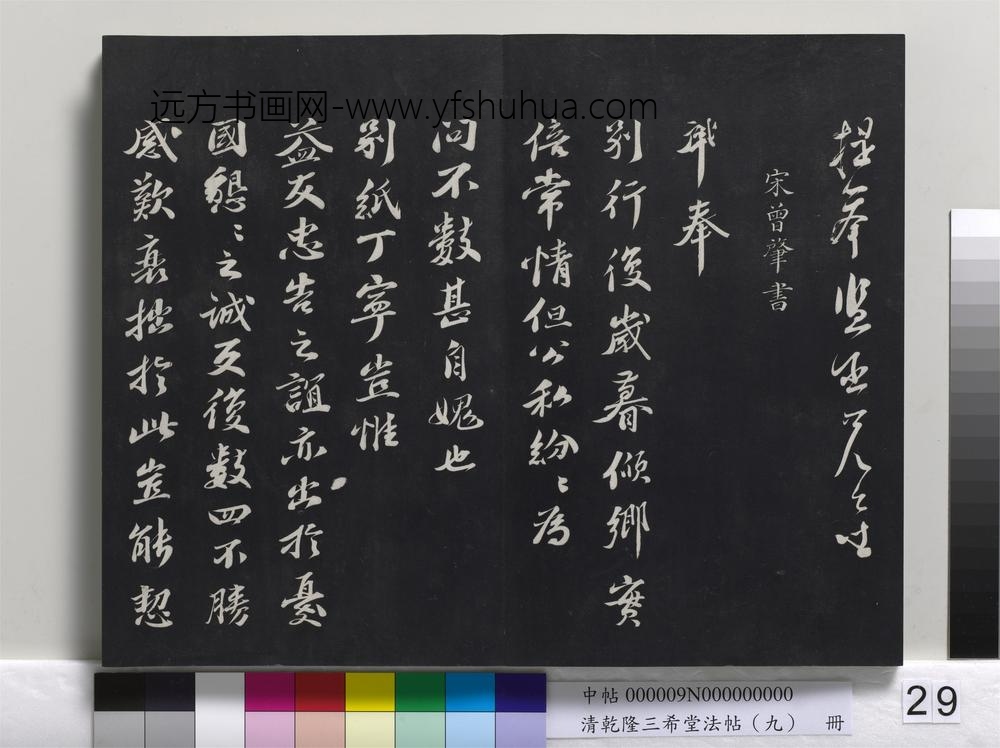 远方书画网-www.yfshuhua.com
宋曾肇書
肇奉
別行後歲暮傾鄉實
倍常情但公私紛〻為
問不數甚自媿也
別紙丁寧豈惟
益友忠告之誼亦出於憂
國懇〻之誠反復數四不勝
感歎衰拙於此豈能
中帖 000009N000000000
清乾隆三希堂法帖（九） 冊
29